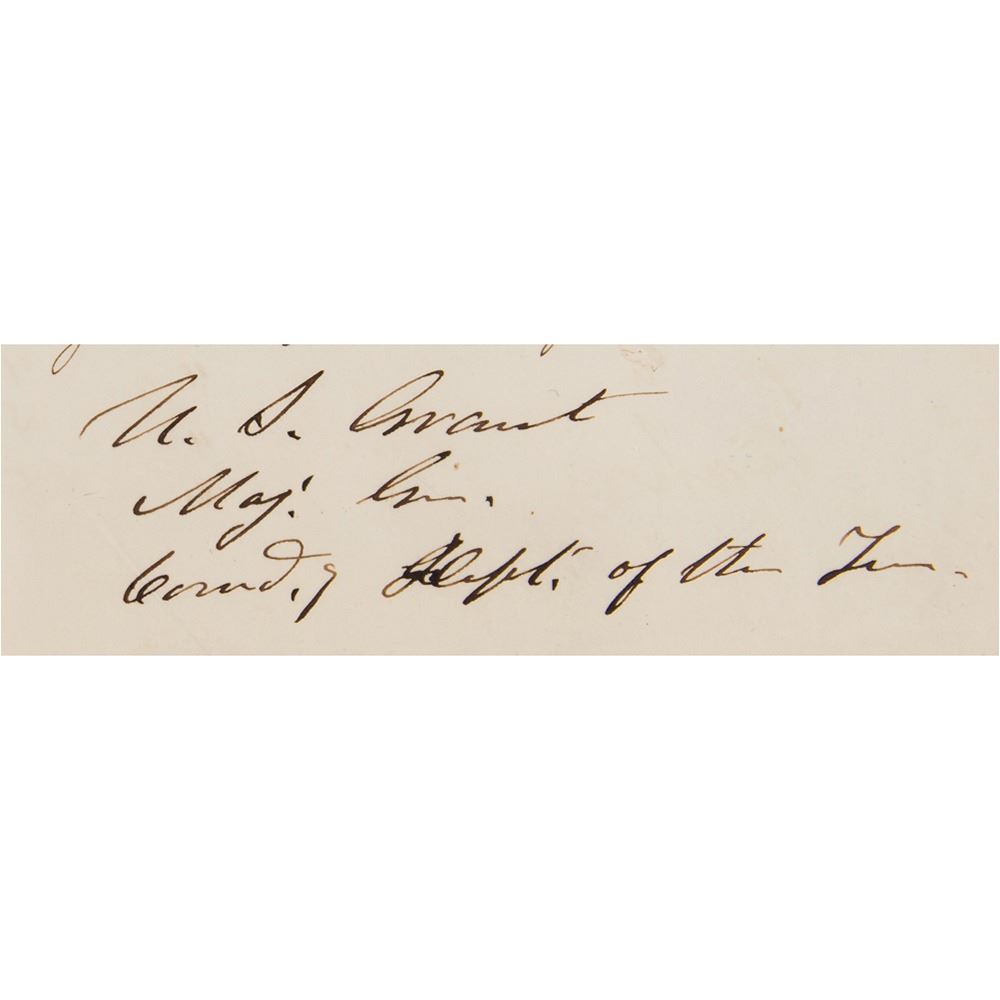 U. S. Grant
Maj. Gen.
Comd.g Dept. of the Ten.